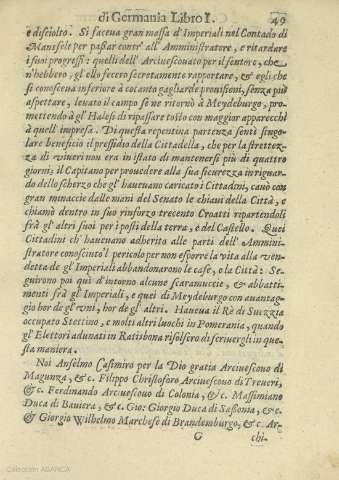 di Germania Libro I. 49
è disciolto. Si faceua gran mossa d'Imperiali nel Contado di
Mansfele per passar contr' all' Amministratore, e ritardare
i suoi progressi: quelli dell' Arciuescouato per il sentore, che
n'hebbero, gl'ello fecero secretamente rapportare, & egli che
si conosceua inferiore à cotanto gagliarde prouisioni, senza più
aspettare, leuato il campo se ne ritornò à Meydeburgo, pro-
mettendo à gl' Halesi di ripassare tosto con maggior apparecchi
à quell' impresa. Di questa repentina partenza sentì singo-
lare beneficio il pressidio della Cittadella, che per la strettez-
za di viueri non era in istato di mantenersi più di quattro
giorni; il Capitano per prouedere alla sua securezza in riguar-
do dello scherzo che gl' haueuano caricato i Cittadini, cauò con
gran minaccie dalle mani del Senato le chiaui della Città, e
chiamò dentro in suo rinforzo trecento Croatti repartendoli
frà gl' altri suoi per i posti della terra, e del Castello. Quei
Cittadini ch' haueuano adherito alle parti dell' Ammini-
stratore conosciuto'l pericolo per non esporre la vita alla ven-
detta de gl'Imperiali abbandonarono le case, e la Città: Se-
guirono poi quì d' intorno alcune scaramuccie, & abbatti-
menti frà gl'Imperiali, e quei di Meydeburgo con auantag-
gio hor de gl' vni, hor de gl' altri. Haueua il Rè di Suezzia
occupato Stettino, e molti altri luochi in Pomerania, quando
gl' Elettori adunati in Ratisbona risolsero di scriuergli in que-
sta maniera.
Noi Anselmo Casimiro per la Dio gratia Arciuescouo di
Magunza, & c. Filippo Christoforo Arciuescouo di Treueri,
& c. Ferdinando Arciuescouo di Colonia, & c. Massimiano
Duca di Bauiera, & c. Gio: Giorgio Duca di Sassonia, & c.
& Giorgio Wilhelmo Marchese di Brandemburgo, & c. Ar-
G chi-
Colección ABANCA